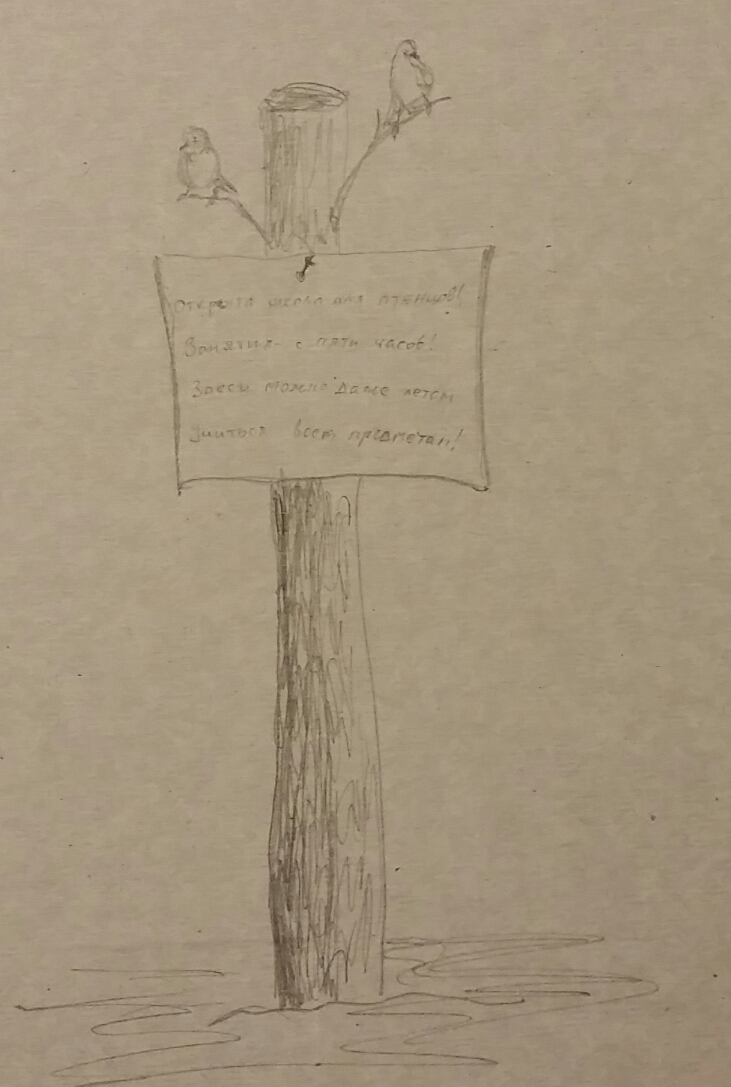 Открыта школа для птенцов!
Занятия - с пяти часов!
Здесь можно даже летом
Учиться всем предметам!